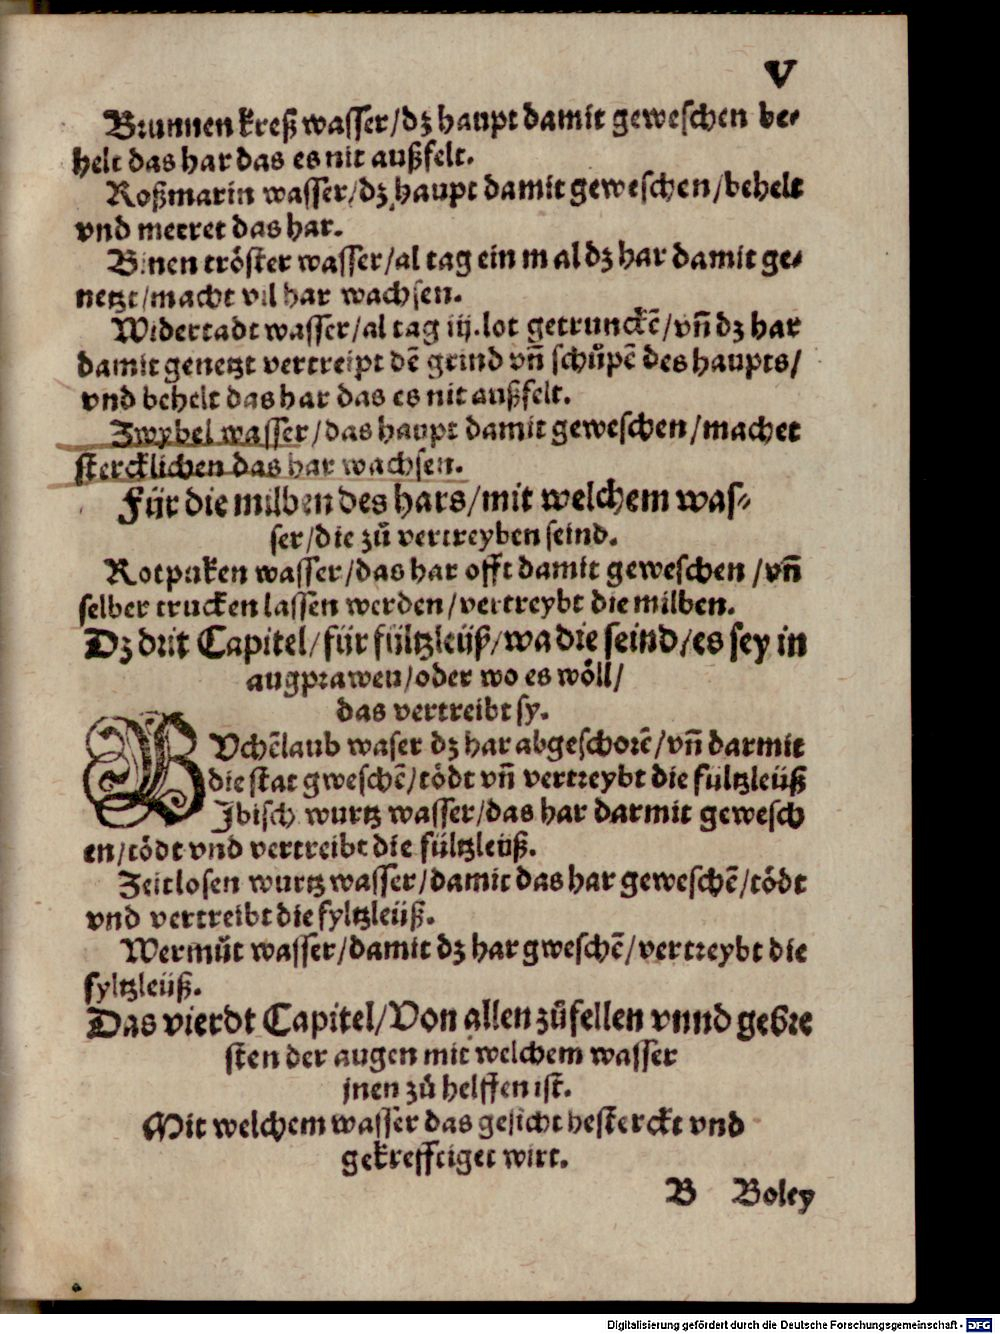 V
Brunnen kreß wasser/dz haupt damit geweschen be⸗
helt das har das es nit außfelt.
Roßmarin wasser/dz haupt damit geweschen/behelt
vnd meeret das har.
Binen tröster wasser/al tag ein mal dz har damit ge⸗
netzt/macht vil har wachsen.
Widertadt wasser/al tag iij.lot getrunckē/vñ dz har
damit genetzt vertreipt dē grind vñ schůpē des haupts/
vnd behelt das har das es nit außfelt.
Zwybel wasser/das haupt damit geweschen/machet
stercklichen das har wachsen.
Für die milben des hars/mit welchem was⸗
ser/die zů vertreyben seind.
Rotpuken wasser/das har offt damit geweschen/vñ
selber trucken lassen werden/vertreybt die milben.
Dz drit Capitel/für fültzleüß/wa die seind/es sey in
augprawen/oder wo es wöll/
das vertreibt sy.
BVchēlaub waser dz har abgeschorē/vñ darmit
die stat gweschē/tödt vñ vertreybt die fültzleüß
Ibisch wurtz wasser/das har darmit gewesch
en/tödt vnd vertreibt die fültzleüß.
Zeitlosen wurtz wasser/damit das har geweschē/tödt
vnd vertreibt die fyltzleüß.
Wermůt wasser/damit dz har gweschē/vertreybt die
fyltzleüß.
Das vierdt Capitel/Von allen zůfellen vnnd gebre
sten der augen mit welchem wasser
jnen zů helffen ist.
Mit welchem wasser das gesicht besterckt vnd
gekrefftiget wirt.
B Boley
Digitalisierung gefördert durch die Deutsche Forschungsgemeinschaft - DFG